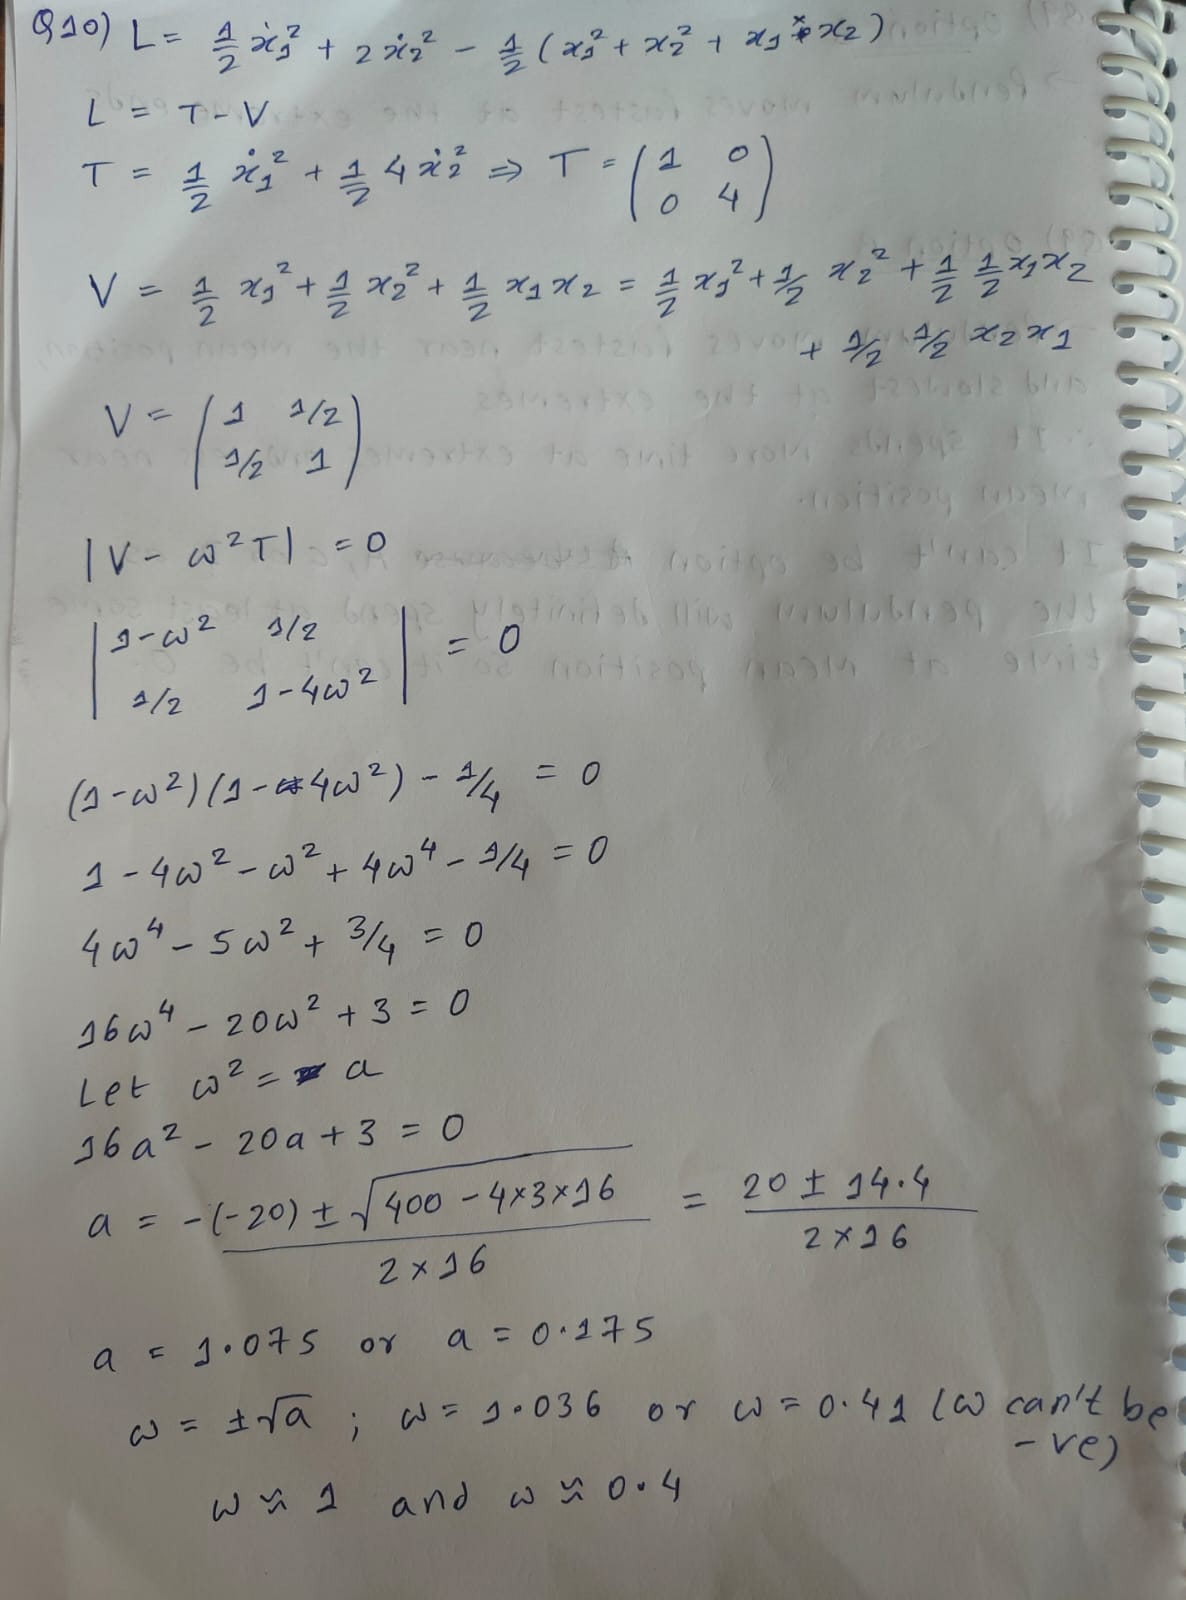 Q10) L = 1/2 ẋ₁² + 2ẋ₂² - 1/2 (x₁² + x₂² + x₁ * x₂)
L = T - V
T = 1/2 ẋ₁² + 1/2 4ẋ₂² ⇒ T = (1 0
0 4)
V = 1/2 x₁² + 1/2 x₂² + 1/2 x₁x₂ = 1/2 x₁² + 1/2 x₂² + 1/2 1/2 x₁x₂
+ 1/2 1/2 x₂x₁
V = (1 1/2
1/2 1)
|V - ω²T| = 0
|1-ω² 1/2
1/2 1-4ω²| = 0
(1-ω²)(1-4ω²) - 1/4 = 0
1 - 4ω² - ω² + 4ω⁴ - 1/4 = 0
4ω⁴ - 5ω² + 3/4 = 0
16ω⁴ - 20ω² + 3 = 0
Let ω² = a
16a² - 20a + 3 = 0
a = -(-20) ± √(400 - 4×3×16) / 2×16 = 20 ± 14.4 / 2×16
a = 1.075 or a = 0.175
ω = ±√a ; ω = 1.036 or ω = 0.41 (ω can't be
-ve)
ω ≈ 1 and ω ≈ 0.4